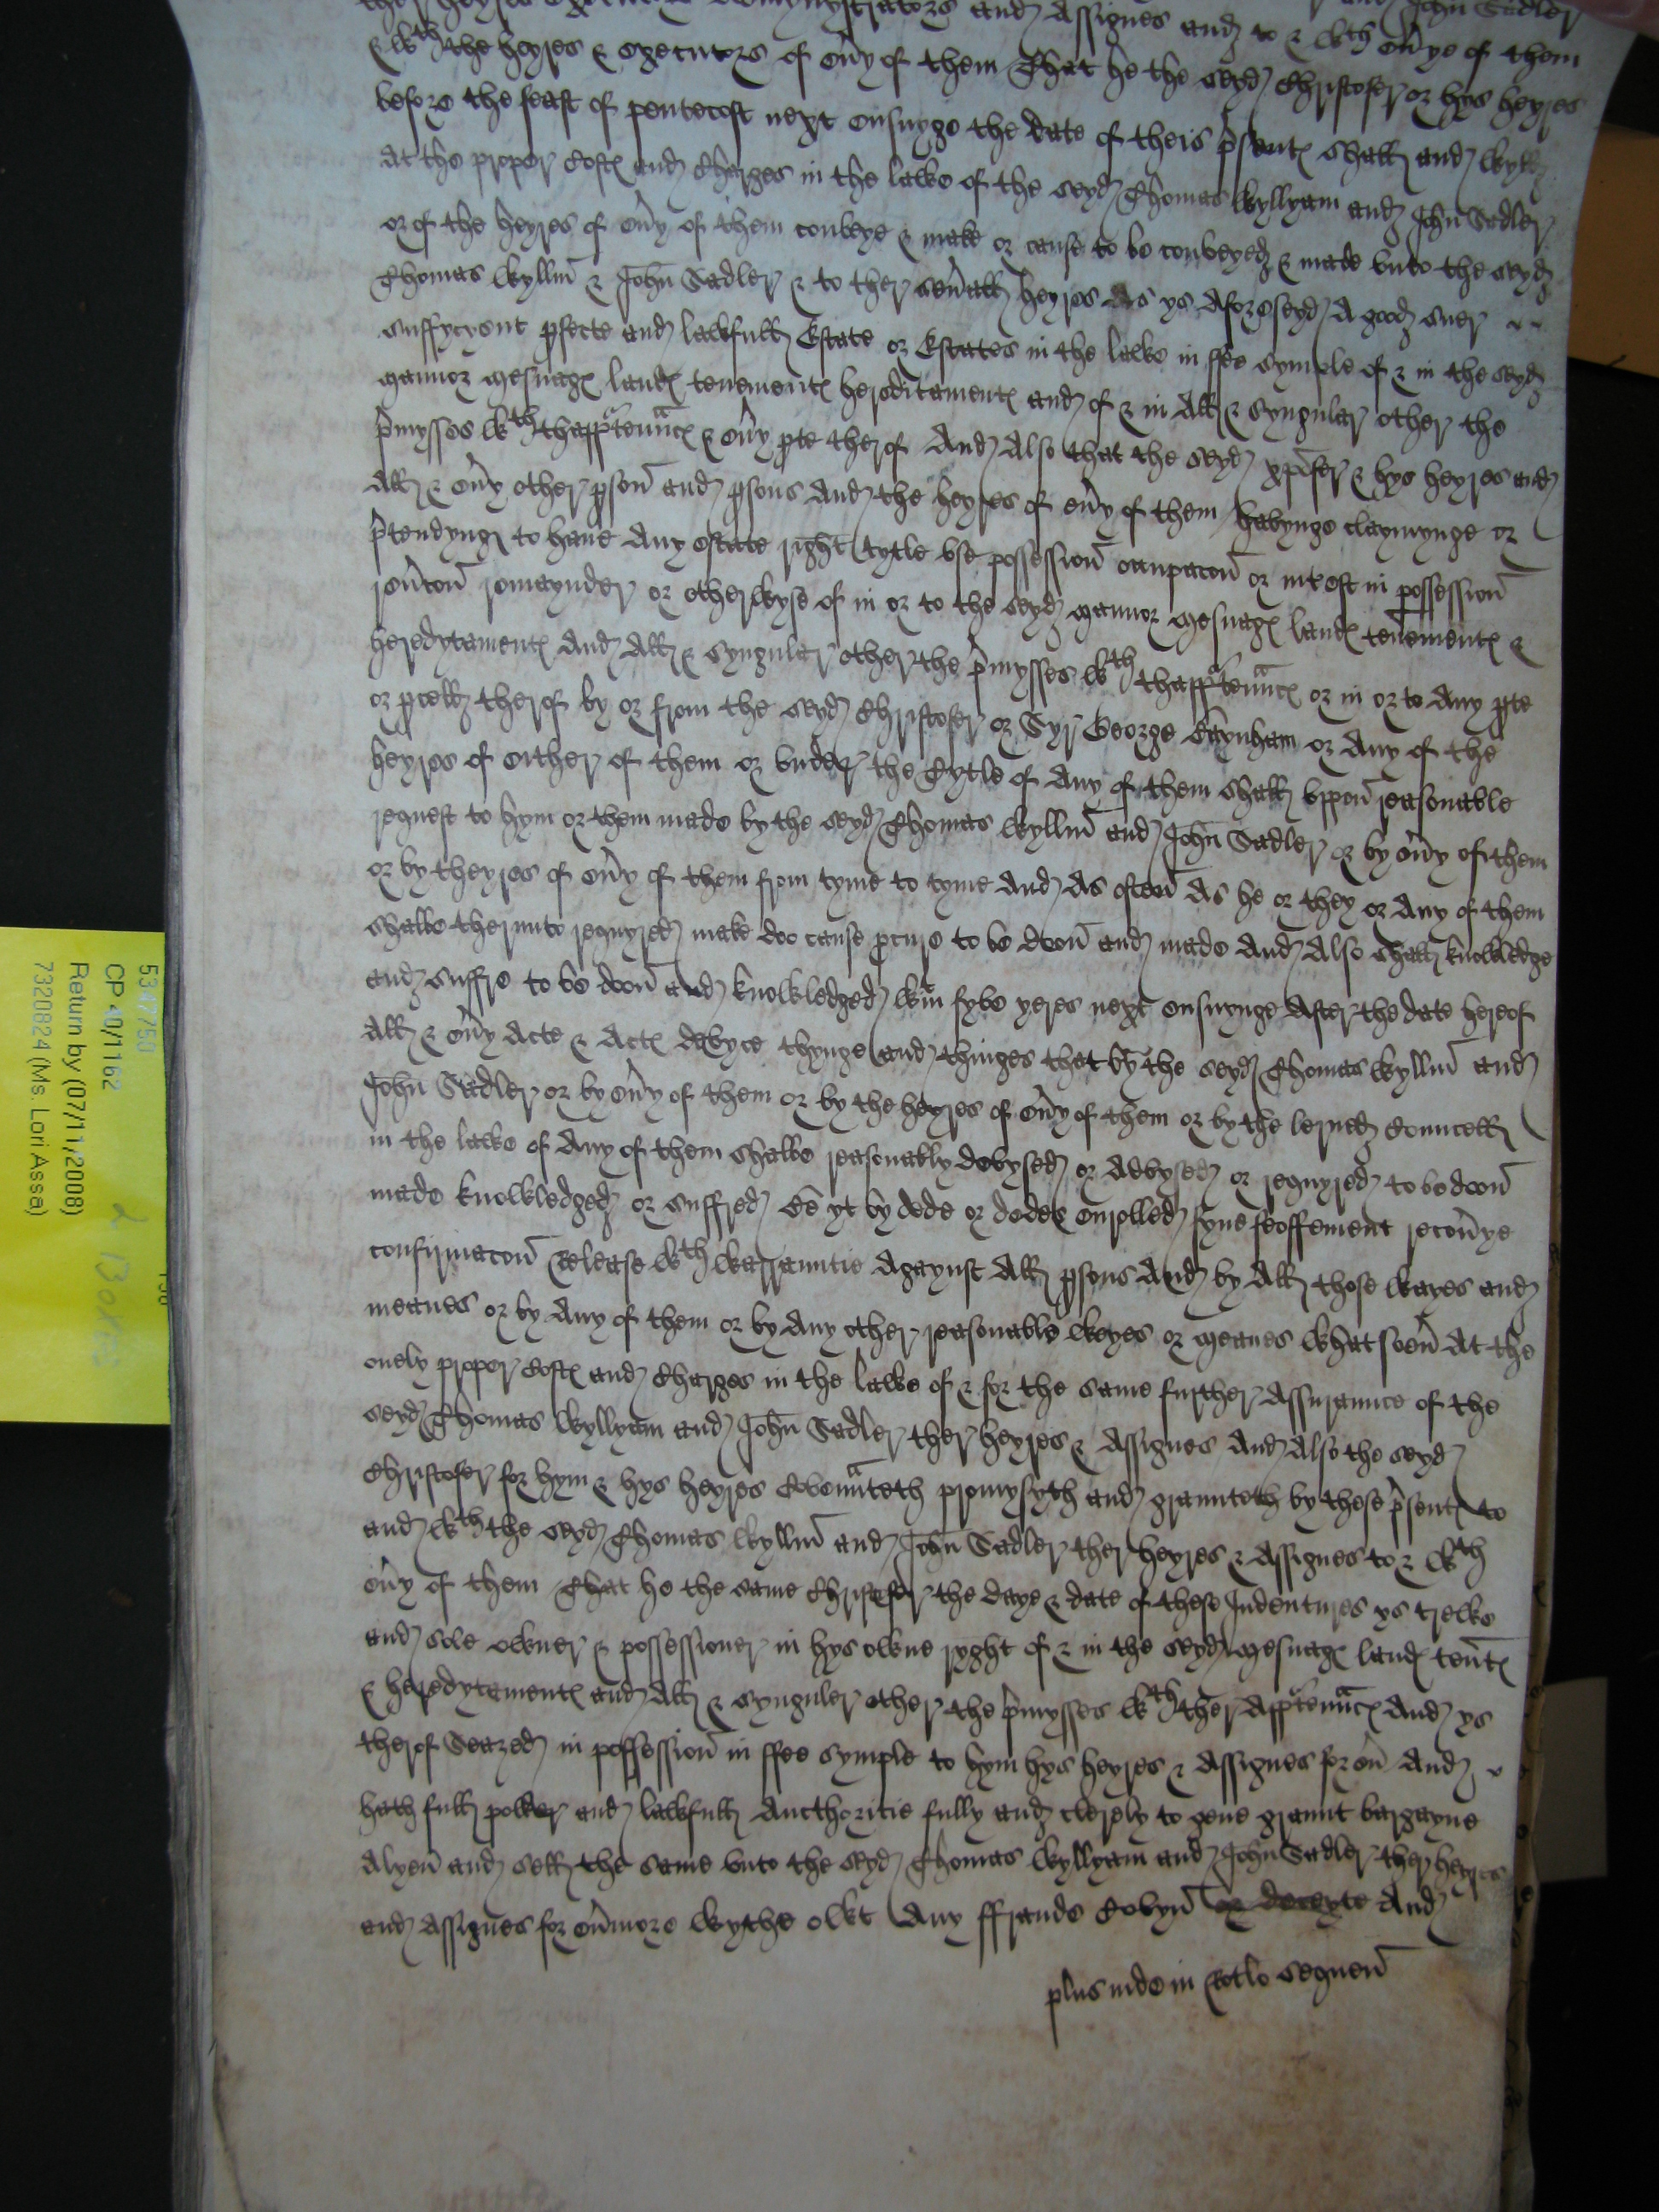 ther heyres executo Admynystrators and Assignes and to & wth eu'ye of them and John Sadler
& wth the heyres & executors of eu'y of them That he the seyd Christofer or hys heyres
before the feast of pentecost next ensuyge the date of theis p'sent shall and wyll
At the proper Cost and Charges in the lawe of the seyd Thomas Wyllyam and John Sadler
or of the heyres of eu'y of them conveye & make or cause to be conveyed & made vnto the seyd
Thomas Wyllm & John Sadler & to ther seu'all heyres As ys Aforeseyd A good suer
suffycyent p'fecte and lawfull Estate or Estates in the lawe in ffee symple of & in the seyd
mannor mesuag land tenement hereditament and of & in All & syngular other the
p'mysses wth thapp'tennc & eu'y p'te therof And Also that the seyd xp'ofer & hys heyres and
All & eu'y other p'son and p'sons And the heyres of eu'y of them havynge claymynge or
p'tendyng to have Any estate right tytle vse possession occupacon or int'est in possession
reu'con remaynder or otherwyse of in or to the seyd mannor mesuag land tenement &
heredytament And All & syngular other the p'mysses wth thapp'tennc or in or to Any p'te
or p'cell therof by or from the seyd Christofer or Syr George or Any of the
heyres of either of them or vnder the Tytle of Any of them shall vppon reasonable
request to hym or them made by the seyd Thomas Wyllm and John Sadler or by eu'y of them
or by theyres of eu'y of them from tyme to tyme And As often As he or they or Any of them
shalbe therunto requyred make doo cause p'cure to be doon and made And Also shall knowledge
and suffre to be doon and knowledged wtin fyve yeres next ensuynge After the date hereof
All & eu'y Acte & Act devyce thynge and thinges that by the seyd Thomas Wyllm and
John Sadler or by eu'y of them or by the heyres of eu'y of them or by the lerned Councell
in the lawe of Any of them shalbe reasonably devysed or Advysed or requyred to be doon
made knowledged or suffred be yt by dede or dedes enrolled fyne feoffement recou'ye
confirmacon Release wth warrauntie Agaynst All p'sons And by All those wayes and
meanes or by Any of them or by Any other reasonable weyes or meanes whatsoeu' At the
onely proper Cost and Charges in the lawe of & for the same further Assuraunce of the
seyd Thomas Wyllyam and John Sadler ther heyres & Assignes And Also the seyd
Christofer for hym & hys heyres Covennteth promysyth and graunteth by these p'sent to
and wth the seyd Thomas Wyllm and John Sadler ther heyres & Assignes to & wth
eu'y of them That he the same Christofer the daye & date of these Indentures ys trewe
and sole owner & possessioner in hys owne ryght of & in the seyd mesuag land ten't
& heredytement and All & synguler other the p'mysses wth ther App'tennc And ys
therof Seazed in possession in ffee symple to hym hys heyres & Assignes for eu' And
hath full power and lawfull Aucthoritie fully and clerely to geve graunt bargayne
Alyen and sell the same vnto the seyd Thomas Wyllyam and John Sadler ther heyres
and Assignes for eu'more wythe owt Any ffraude Covyn or deceyte And
plus inde in Rotlo sequen'
5347750
CP 40/1162
Return by (07/11/2008)
7320824 (Ms. Lori Assa)